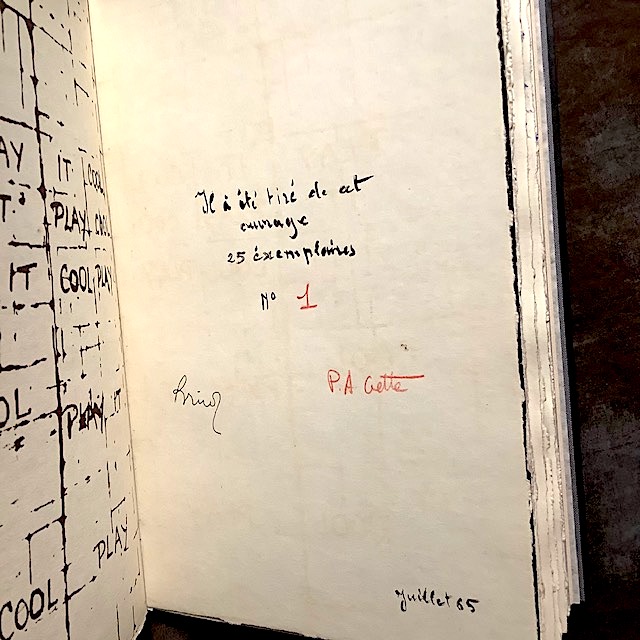 AY
IT
COOL
T
PLAY
COOL
IT
COOL
PLAY
OL
PLAY
IT
PLAY
COOL
Il a été tiré de cet
ouvrage
25 éxemplaires
N° 1
P.A Gette
Juillet 65